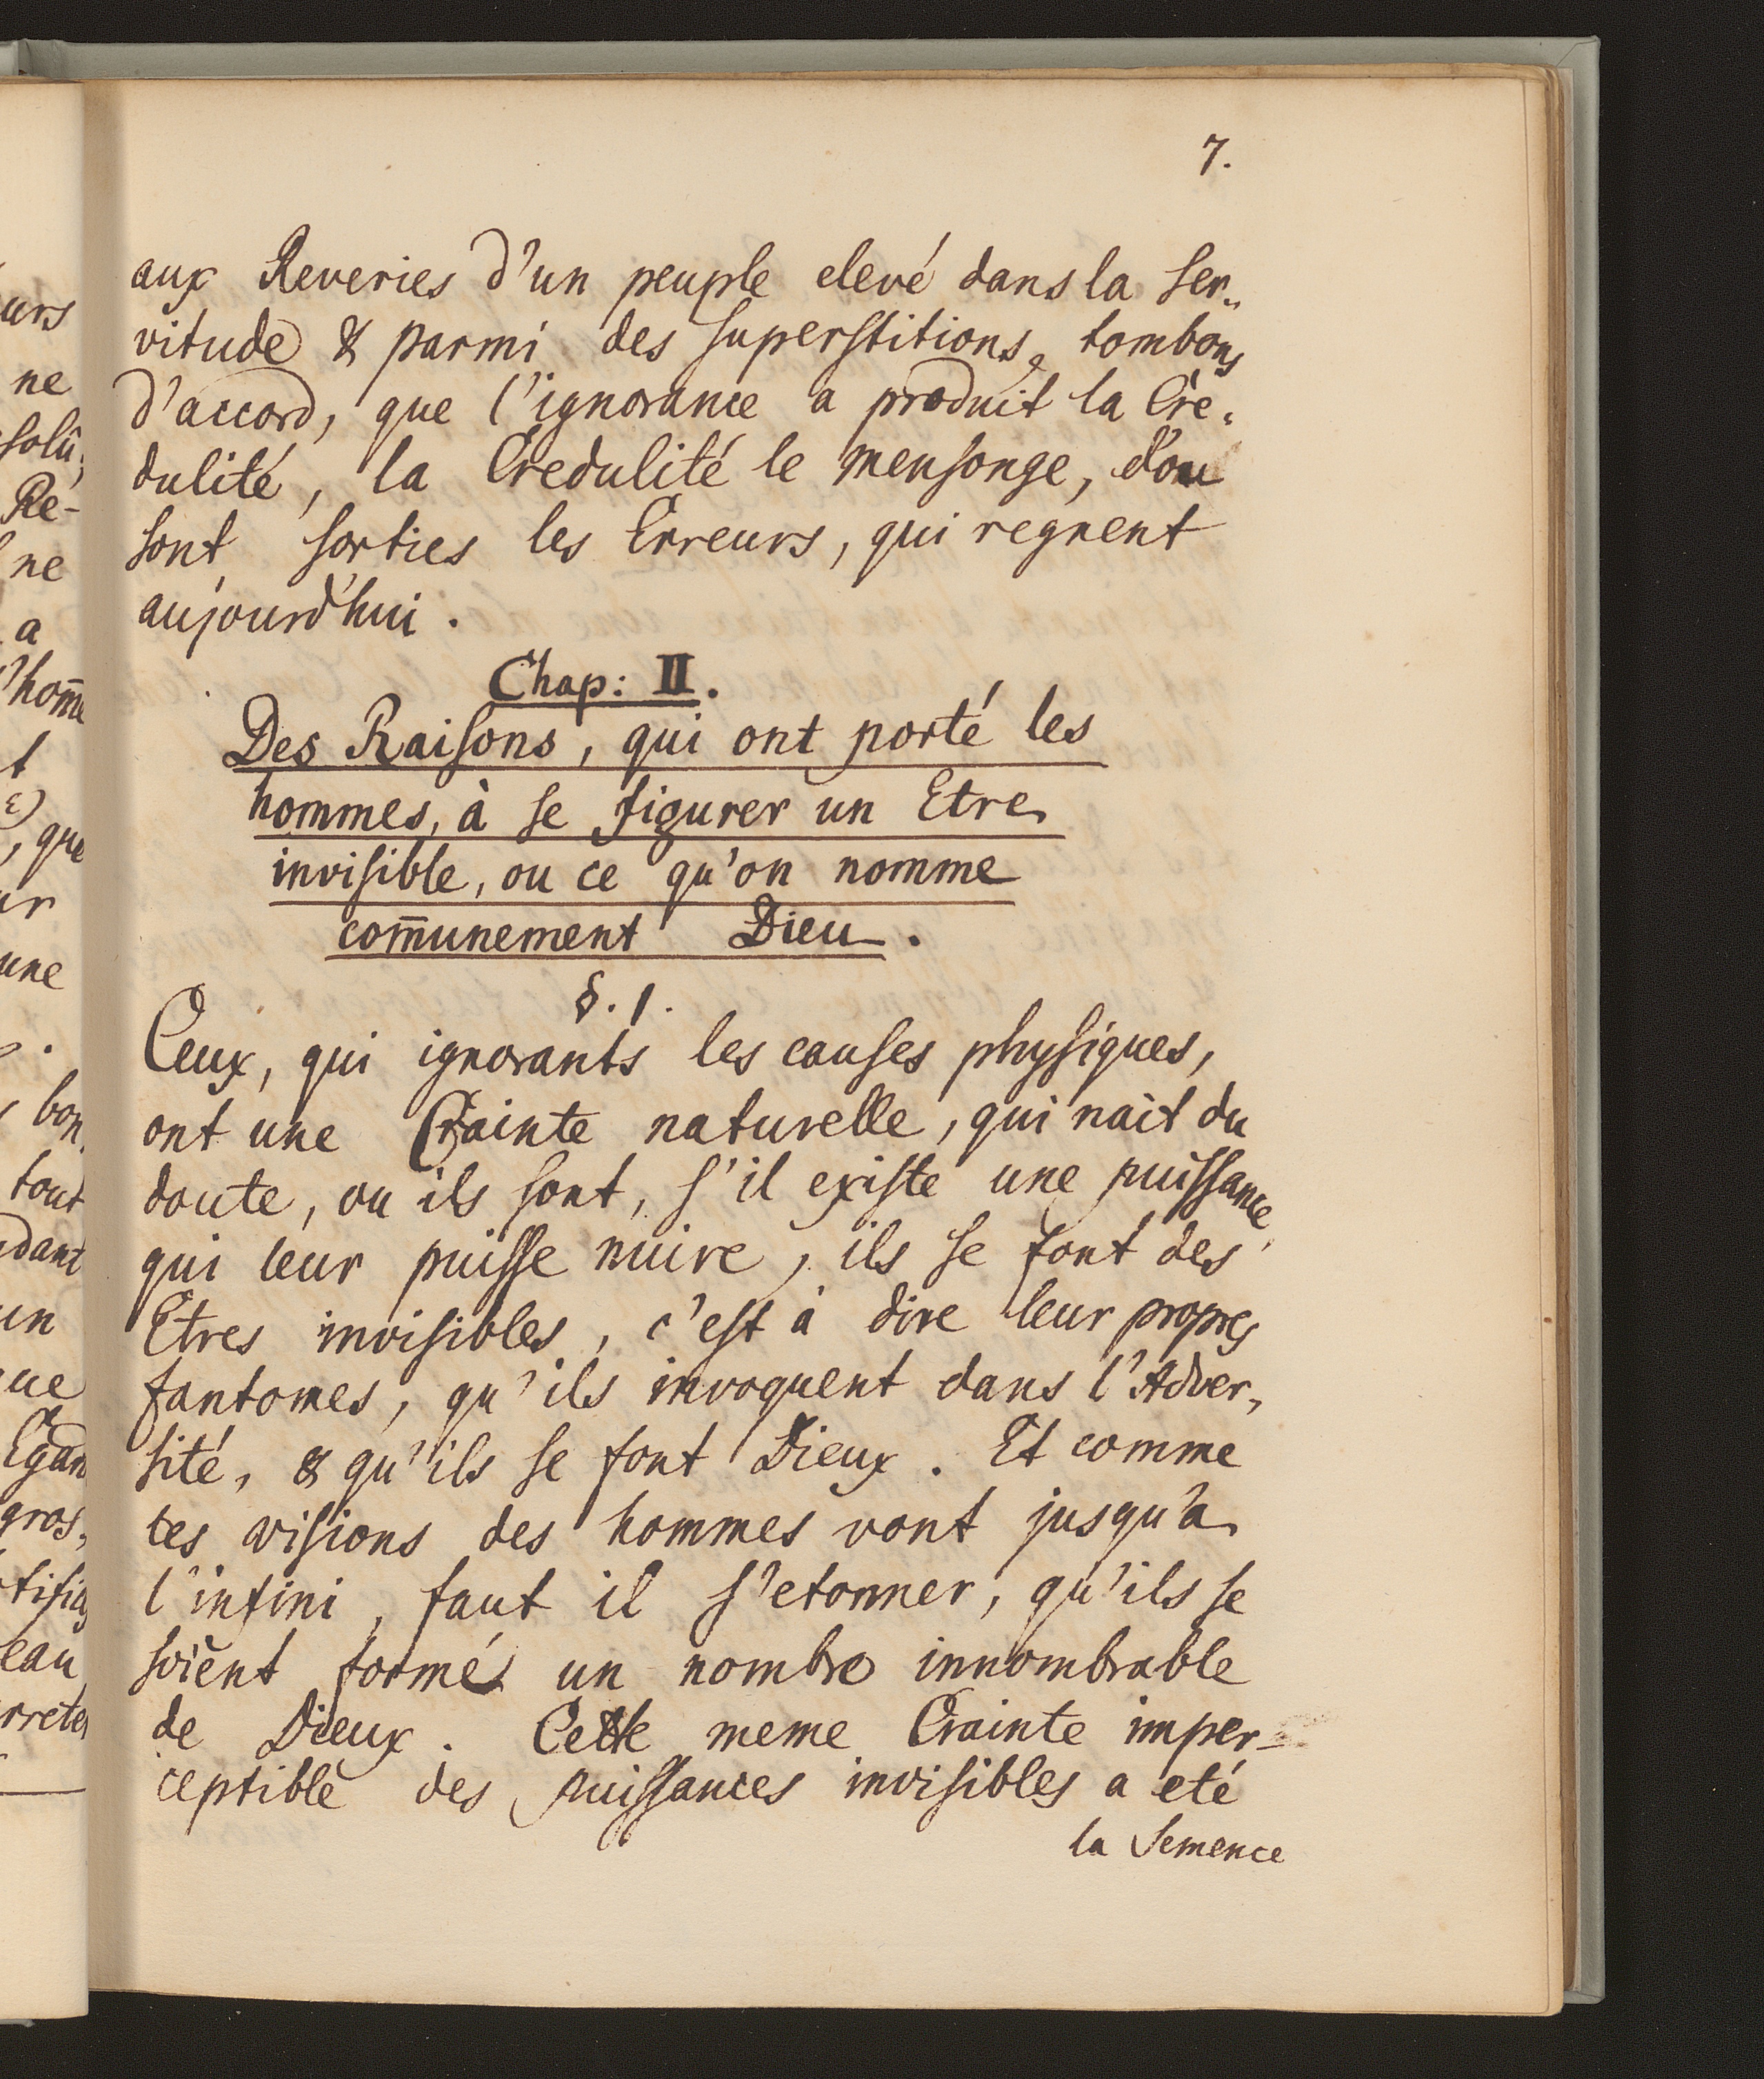 7.
aux Reveries d'un peuple elevé dans la ser„
vitude & parmi des superstitions, tombons
d'accord, que l'ignorance a produit la Cre„
dulité, la Credulité le mensonge, d'ou
sont sorties les Erreurs, qui regnent
aujourd'hui.
Chap: II.
Des Raisons, qui ont porté les
hommes, à se figurer un Etre
invisible, ou ce qu'on nomme
com̄unement Dieu.
§. 1.
Ceux, qui ignorants les causes physiques,
ont une Crainte naturelle, qui nait du
doute, ou ils sont, s'il existe une puissance,
qui leur puisse nuire, ils se font des
Etres invisibles, c'est à dire leur propres
fantomes, qu'ils invoquent dans l'Adver„
sité, & qu'ils se font Dieux. Et comme
les visions des hommes vont jusqu'a
l'infini, faut il s'etonner, qu'ils se
soient formés un nombre innombrable
de Dieux. Cette meme Crainte imper-
ceptible des puissances invisibles a eté
la Semence
urs
ne
solû,
Ré-
ne
a
'hom̄e
t
, que
ur
une
bon„
tout
dant
un
ue
gros„
eau